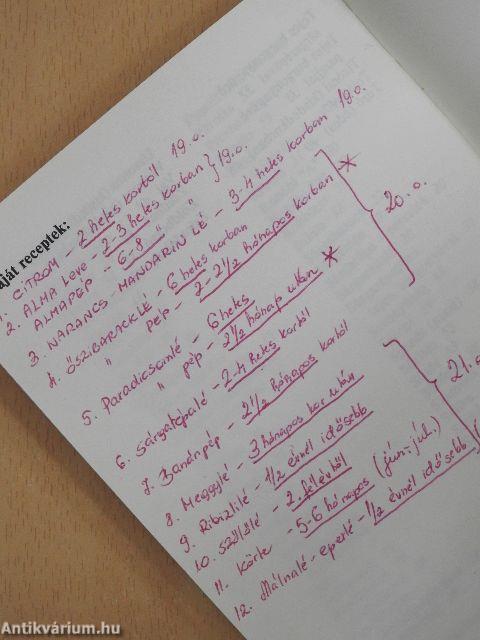 aját receptek:
1. CITROM - 2 hetes kortól 19.o.
2. ALMA LEVE - 2-3 hetes korban } 19.o.
ALMAPÉP - 6-8 " "
3. NARANCS - MANDARIN LÉ - 3-4 hetes korban 19.o.
4. ŐSZIBARACKLÉ - 6 hetes korban
" pép - 2-2 1/2 hónapos korban *
5. Paradicsomlé - 6 hetes
" pép - 2 1/2 hónap után *
20.o.
6. Sárgarépalé - 2-4 hetes kortól
7. Banánpép - 2 1/2 hónapos kortól
8. Meggylé - 3 hónapos kor után
9. Ribizlilé - 1/2 évnél idősebb
10. Szőlőlé - 2. félévtől
11. Körte - 5-6 hónapos (jún-júl.)
12. Málnalé - eperlé - 1/2 évnél idősebb
21.o.
Antikvárium.hu